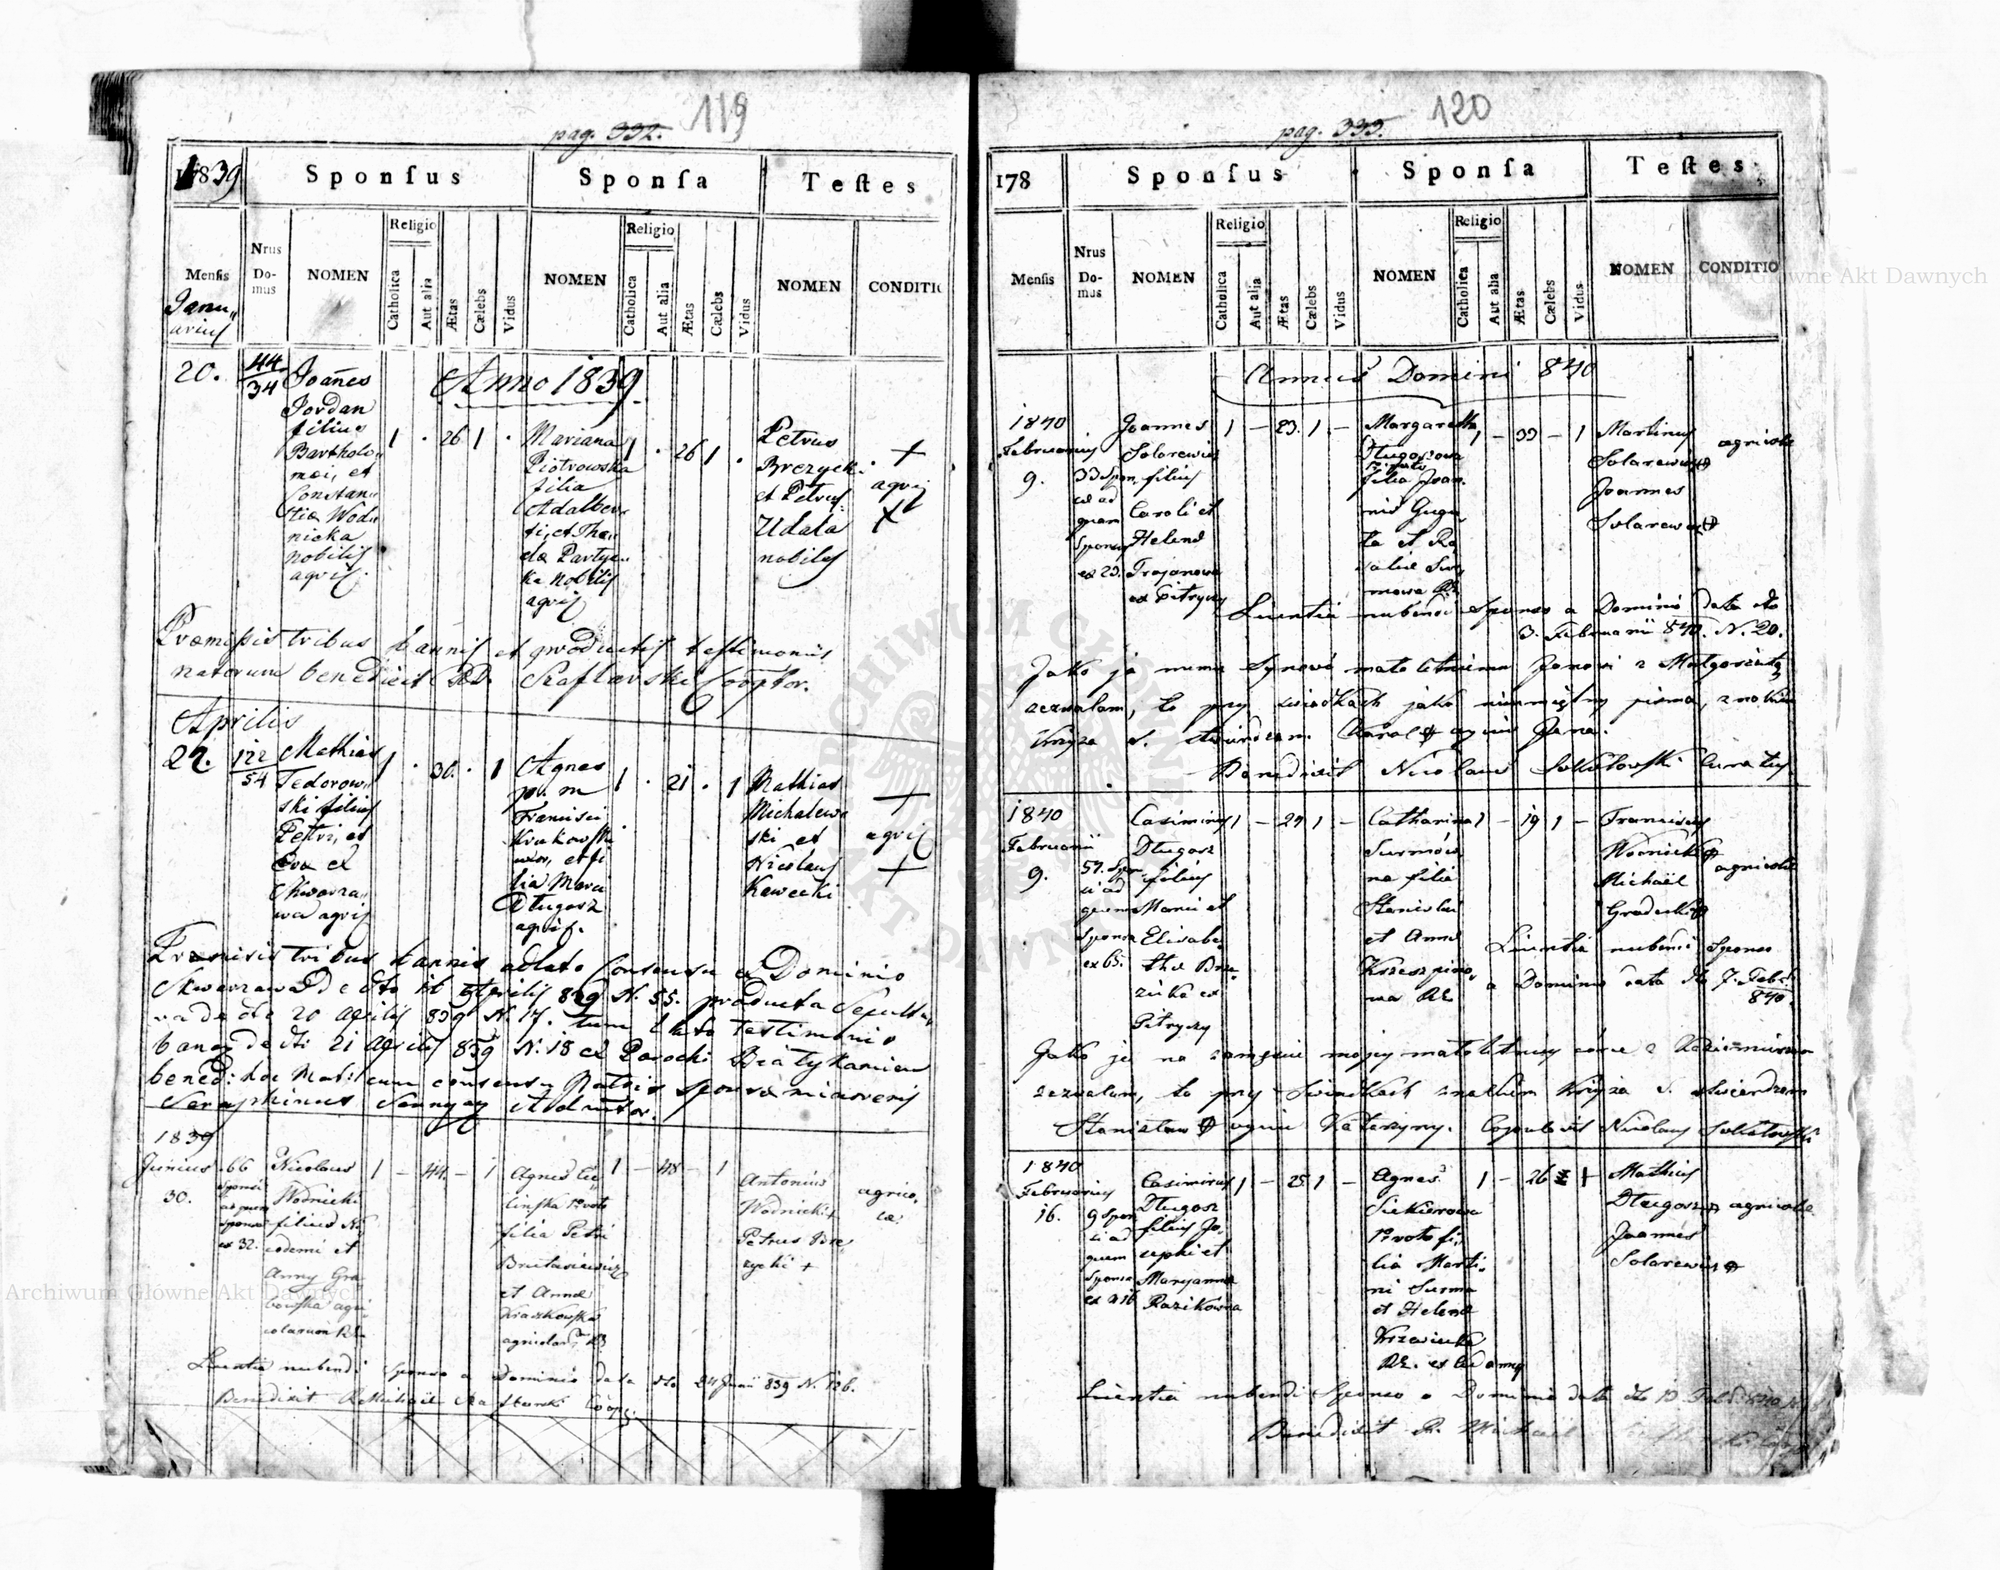 119
pag. 332.
1839
Sponsus
Sponsa
Testes
Mensis
Nrus Domus
NOMEN
Religio
Catholica
Aut alia
Ætas
Cælebs
Vidus
NOMEN
Religio
Catholica
Aut alia
Ætas
Cælebs
Vidus
NOMEN
CONDITIO
Janu„
arius
Anno 1839
20.
44
34
Joanes
Jordan
filius
Bartholo„
mæi, et
Constan„
tiæ Wod„
nicka
nobilis
agric.
1 . 26 1 .
Mariana
Piotrowska
filia
Adalber„
ti, et The„
clæ Party„
ka nobilis
agric
1 . 26 1 .
Petrus
Brczycki
et Petrus
Udala
nobiles
+
agric
X
Præmissis tribus bannis et productis testimoniis
natorum benedicit RD. Szaflarski Cooptor.
Aprilis
22.
122
54
Mathias
Fedorow„
ski filius
Petri, et
Eva
Skwarza„
wa agric
1 . 30. . 1
Agnes
p. m
Francisci
Krakowski
uxor, et fi
lia Marci
Długosz
agric.
1 . 21 . 1
Mathias
Michalews
ski et
Nicolaus
Kawecki
+
agric
+
Præmissis tribus bannis ablato Consensu a Dominio
Skwarzawa Ddto 16 Aprilis 839 N. 55. producta Sepultu„
ra de dto 20 Aprilis 839 N. 17. tum testimonio
bannor de dti 21 Aprilis 839 N. 18 Parochi Białykamien
bened: hoc Mat: cum consensu Matris sponsæ minorenis
Seraphinus Administor.
1839
Junius
30.
66
Sponsi
ad quem
sponsa
ex 32.
Nicolaus
Wodnicki
filius Ni„
codemi et
Anny Gra
bowska agri
colarum RL.
1 – 44. – 1
Agnes Cie
linska 1º voto
filia Petri
et Annæ
Kraczkowska
agricolar.
1 – 48 – 1
Antonius
Wodnicki +
Petrus Brc„
zycki +
agrico„
læ.
Licentia nubendi sponso a Dominio data dto 24 Junii 839 N. 126.
Benedixit R. Michael Szaflarski Coop.
120
pag. 333.
178
Sponsus
Sponsa
Testes
Mensis
Nrus Domus
NOMEN
Religio
Catholica
Aut alia
Ætas
Cælebs
Vidus
NOMEN
Religio
Catholica
Aut alia
Ætas
Cælebs
Vidus
NOMEN
CONDITIO
Annus Domini 840
1840
Februarius
9.
33 spon„
sæ ad
quam
Sponsus
ex 23.
Joannes
Solarewicz
filius
Caroli et
Helenæ
Trojanows
ex Pitrycz
1 – 23. 1 –
Margaretha
Długoszowa
1º voto
filia Joan„
nis Guga„
ła et Ro
saliæ Sur„
mowa RL.
1 – 33 – 1
Martinus
Solarewicz +
Joannes
Solarewicz +
agricolæ
Licentia nubendi Sponso a Dominio data dto
3. Februarii 840. N. 20.
Jako ja memu Synowi małoletniemu Janowi z Małgorzatą
zezwalam, to przy świadkach jako nieumiętny pisma, znakiem
krzyża S. stwierdzam. Karol + ojciec Jana.
Benedixit Nicolaus Sokołowski Curatus
1840
Februarii
9.
57. Spon
si ad
quem
Sponsa
ex 65.
Casimirus
Długosz
filius
Marci et
Elisabe„
thæ Brze„
zicka ex
Pitryczy
1 – 24 1 –
Catharina
Surmów„
na filia
Stanislai
et Annæ
Krzeszpino„
wa RL.
1 – 19 1 –
Franciscus
Wodnicki +
Michaël
Gradecki +
agricolæ
Licentia nubendi Sponso
a Dominio data dto 7. Febr:
840.
Jako ja na zamęście mojey małoletniey córce z Kazimierzem
zezwalam, to przy Świadkach znakiem krzyża S. stwierdzam
Stanisław + ojciec Katarzyny. Copulavit Nicolaus Sokołowski
1840
Februarius
16.
9 Spon
si ad
quem
Sponsa
ex 218
Casimirus
Długosz
filius Jo„
sephi et
Maryanna
Razikówna
1 – 25. 1 –
Agnes
Siekierowa
1º voto fi„
lia Marti„
ni Surma
et Helenæ
Krzewicka
1 – 26 – 1
Mathias
Długosz +
Joannes
Solarewicz +
agricolæ
Licentia nubendi Sponso a Dominio data dto 10 Feb. 840
Benedixit R. Michael
Archiwum Główne Akt Dawnych
Archiwum Główne Akt Dawnych
ARCHIWUM GŁÓWNE AKT DAWNYCH